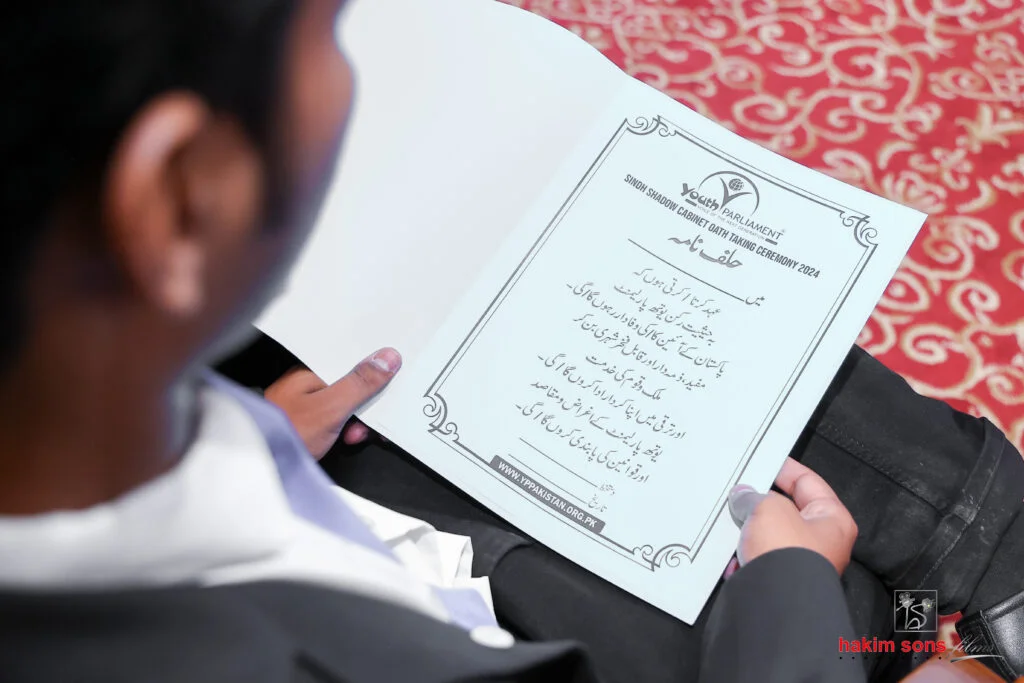 Youth PARLIAMENT
VOICE OF THE NEXT GENERATION
SINDH SHADOW CABINET OATH TAKING CEREMONY 2024
حلف نامہ
میں
عہد کرتا / کرتی ہوں کہ
بحیثیت رکن یوتھ پارلیمنٹ
پاکستان کے آئین کا / کی وفادار رہوں گا / گی۔
مفید، ذمہ دار اور قابل فخر شہری بن کر
ملک و قوم کی خدمت
اور ترقی میں اپنا کردار ادا کروں گا / گی۔
یوتھ پارلیمنٹ کے اغراض و مقاصد
اور قوانین کی پابندی کروں گا / گی۔
دستخط
تاریخ
WWW.YPPAKISTAN.ORG.PK
hakim sons films